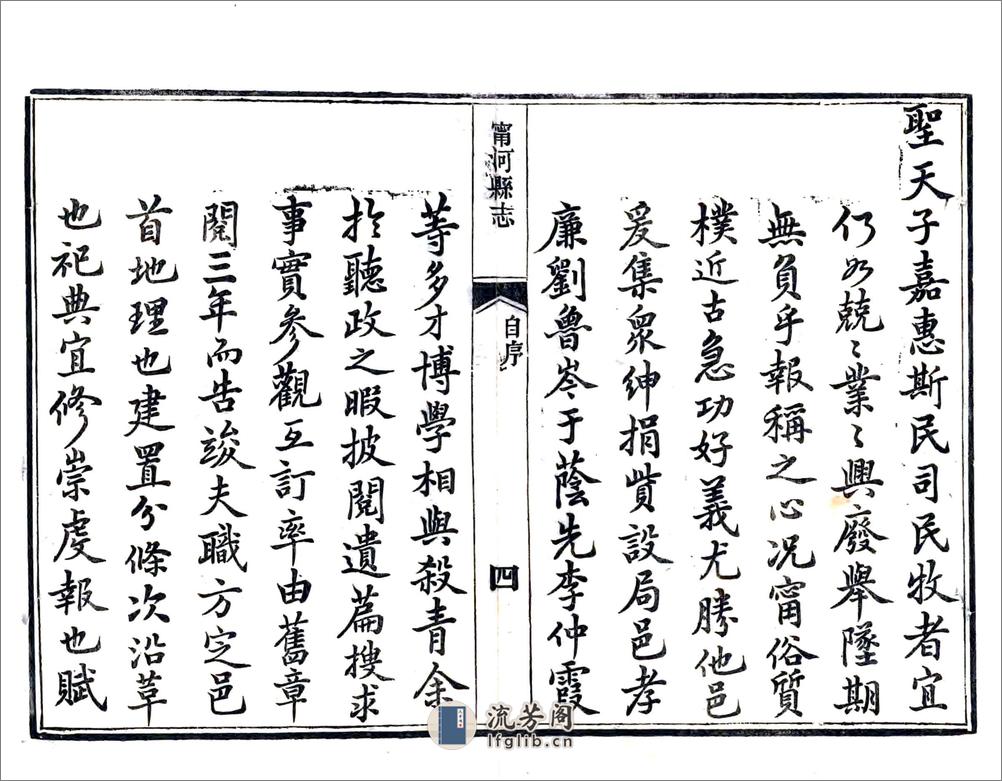 聖天子嘉惠斯民司民牧者宜
仍如兢〻業〻興廢舉墜期
無負乎報稱之心況甯俗質
樸近古急功好義尤勝他邑
爰集衆紳捐貲設局邑孝
廉劉魯岑于蔭先李仲霞
甯河縣志
自序
四
等多才博學相與殺青余
於聽政之暇披閱遺篇搜求
事實參觀互訂率由舊章
閱三年而告竣夫職方定邑
首地理也建置分條次沿革
也祀典宜修崇虔報也賦
流芳阁
lfglib.cn